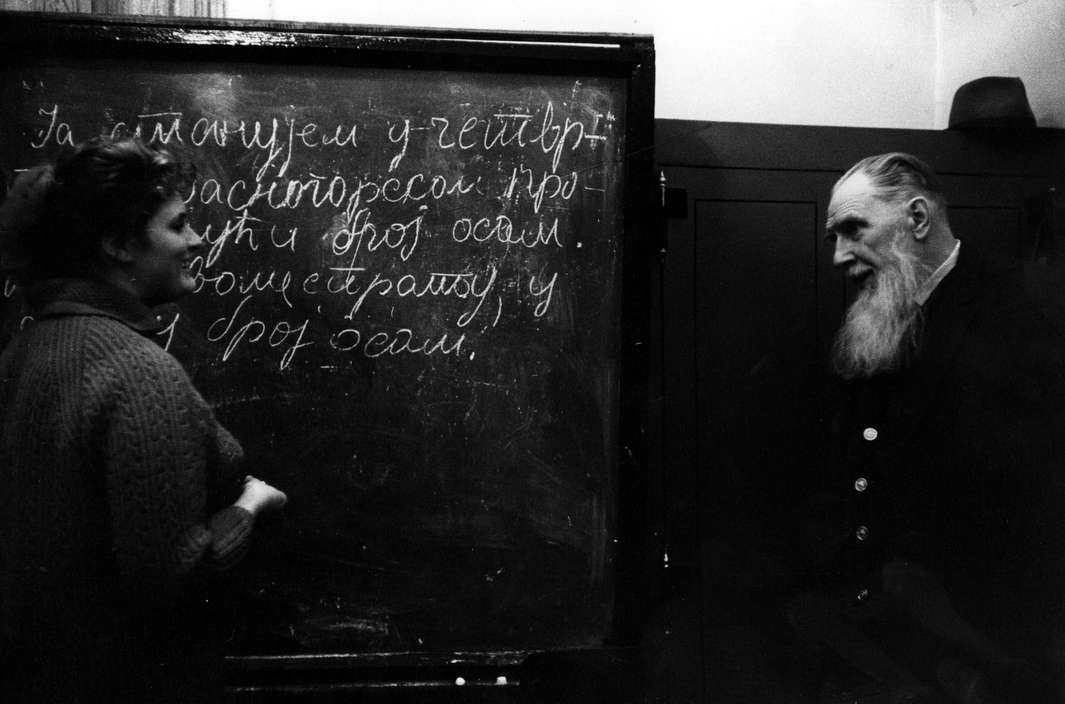 Ја станујем у четвр-
расногорском про-
број осам.
спрату, у
број осам.